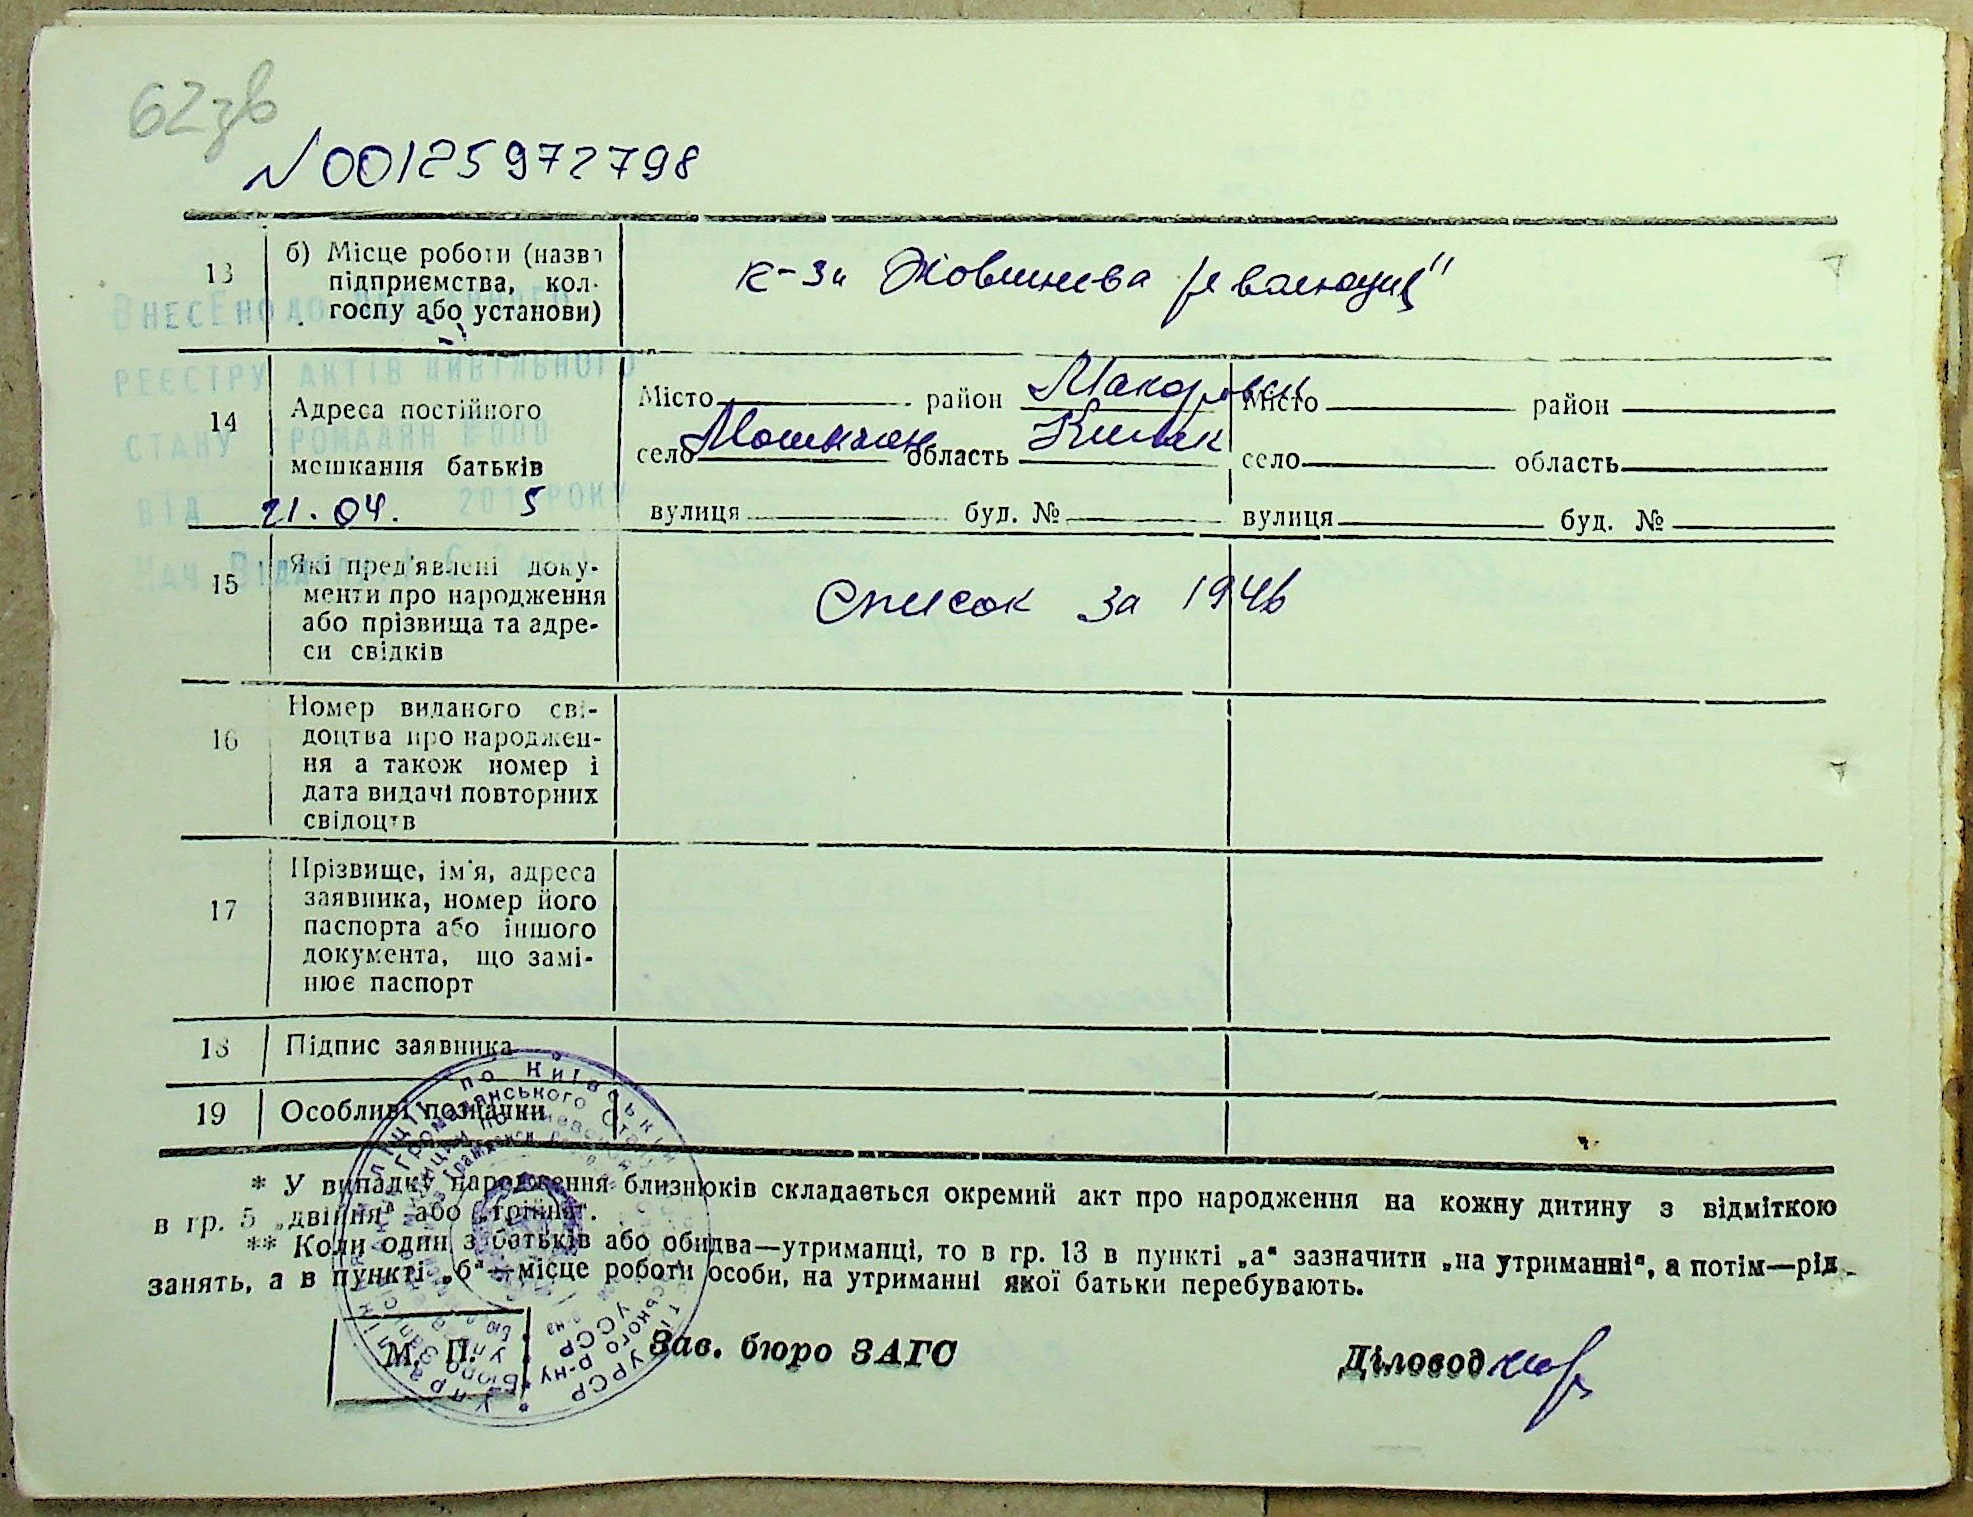 62зв
N00125972798
13
б) Місце роботи (назва
підприємства, кол-
госпу або установи)
к-за Жовтнева революція"
Внесено до Державного
реєстру актів цивільного
стану громадян №000
від 21.04. 2015 року
Нач. відділу
14
Адреса постійного
мешкання батьків
Місто район Макаровск
село область Київск
вулиця буд. №
Місто район
село область
вулиця буд. №
15
Які пред'явлені доку-
менти про народження
або прізвища та адре-
си свідків
список за 1946
16
Номер виданого сві-
доцтва про народжен-
ня а також номер і
дата видачі повторних
свідоцтв
17
Прізвище, ім'я, адреса
заявника, номер його
паспорта або іншого
документа, що замі-
нює паспорт
18
Підпис заявника
19
Особливі позначки
* У випадку народження близнюків складається окремий акт про народження на кожну дитину з відміткою
в гр. 5 „двійня" або „трійня".
** Коли один з батьків або обидва—утриманці, то в гр. 13 в пункті „а" зазначити „на утриманні", а потім—рід
занять, а в пункті „б"—місце роботи особи, на утриманні якої батьки перебувають.
М. П.
Зав. бюро ЗАГС
Діловод